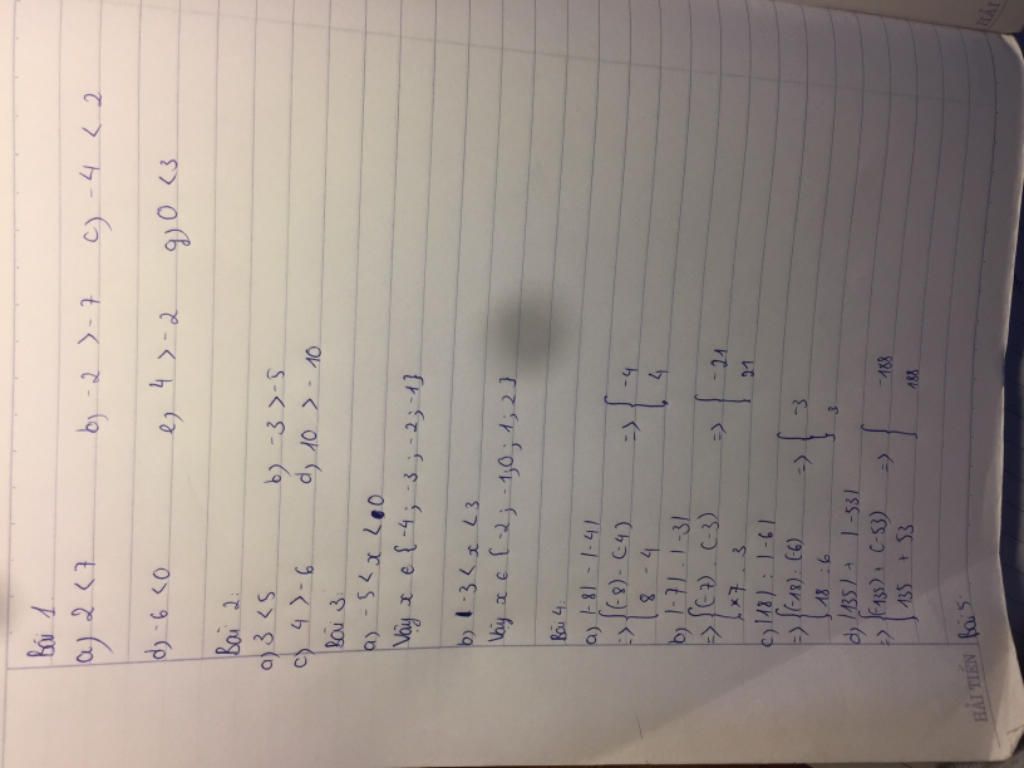 Bài 1
a) 2 < 7 b) -2 > -7 c) -4 < 2
d) -6 < 0 e) 4 > -2 g) 0 < 3
Bài 2:
a) 3 < 5 b) -3 > -5
c) 4 > -6 d) 10 > -10
Bài 3:
a) -5 < x < 0
Vậy x ∈ {-4 ; -3 ; -2 ; -1}
b) -3 < x < 3
Vậy x ∈ {-2 ; -1; 0 ; 1 ; 2}
Bài 4:
a) |-8| - |-4|
=> { (-8) - (-4) => { -4
8 - 4 4
b) |-7| . |-3|
=> { (-7) . (-3) => { -21
7 . 3 21
c) |18| : |-6|
=> { (-18) . (6) => { -3
18 . 6 3
d) |135| + |-53|
=> { (-135) + (-53) => { -188
135 + 53 188
Bài 5:
HẢI TIẾN
HẢI